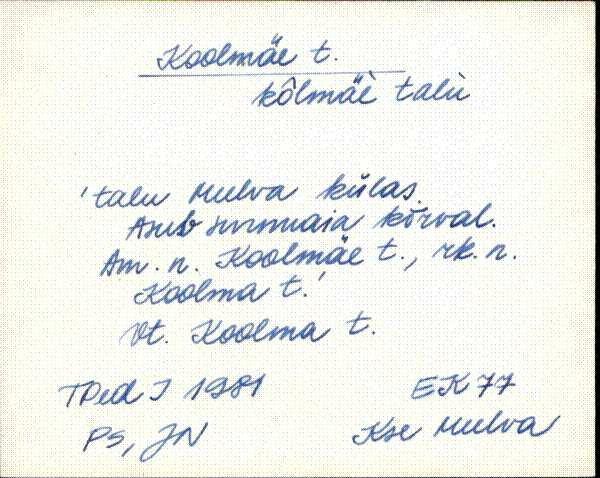 Koolmäe t.
kõlmäè talù
'talu Mulva külas.
Asub surnuaia kõrval.
Am. n. Koolmäe t., rk. n.
Koolma t.'
Vt. Koolma t.
TPed I 1981 EK 77
PS, JN Kse Mulva